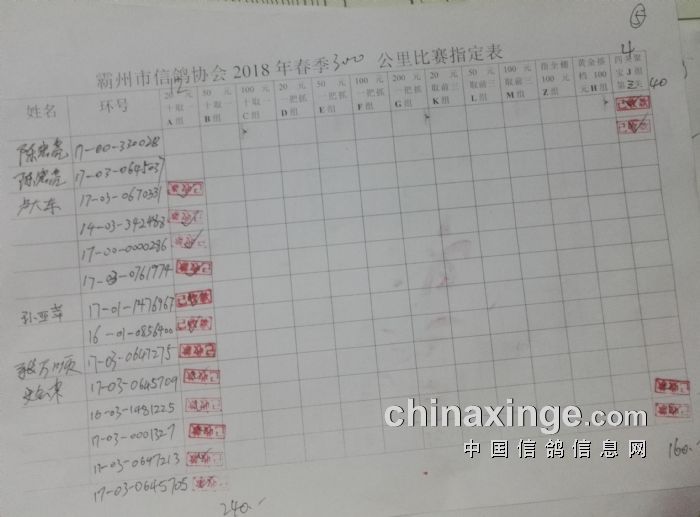 ⑤
霸州市信鸽协会 2018 年春季300 公里比赛指定表
姓名 环号 20 元十取一 A 组 50 元十取一 B 组 100 元十取一 C 组 20 元一把抓 D 组 50 元一把抓 E 组 100 元一把抓 F 组 200 元一把抓 G 组 20 元取前三 K 组 50 元取前三 L 组 100 元取前三 M 组
4
40
17-00-330028
17-03-0645037
卢大东 17-03-0670331
14-03-342488
17-00-0000286
17-03-0761974
孙亚萍 17-01-1476967
16-01-0856400
17-03-0647275
17-03-0645709
16-03-1481225
17-03-0001327
17-03-0647213
17-03-0645705
240.-
160.-
chinaxinge.com
中国信鸽信息网